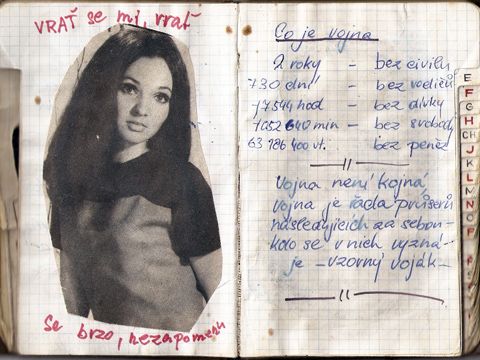 VRAŤ se mi, vrať
se brzo, nezapomeň
Co je vojna
2 roky – bez civilu
730 dní – bez rodičů
17544 hod – bez dívky
1052640 min – bez svobody
63 186 400 vt. – bez peněz
Vojna není kojná
vojna je řada průserů
následujících za sebou –
kdo se v nich vyzná –
je – vzorný voják –
E
F
G
H
CH
J
K
L
M
N
O